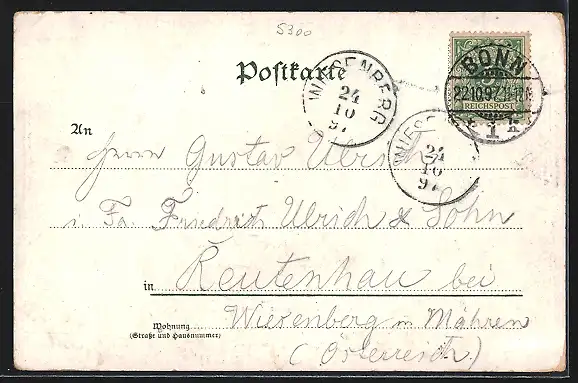 5300
Postkarte
BONN
22.10.97.
REICHSPOST
1
WIESENBERG
24
10
97
WIESE
24
10
97
An
Herrn Gustav Ulrich
i. Fa. Friedrich Ulrich & Sohn
in Reutenhau bei
Wohnung
(Straße und Hausnummer)
Wiesenberg in Mähren
(Österreich)